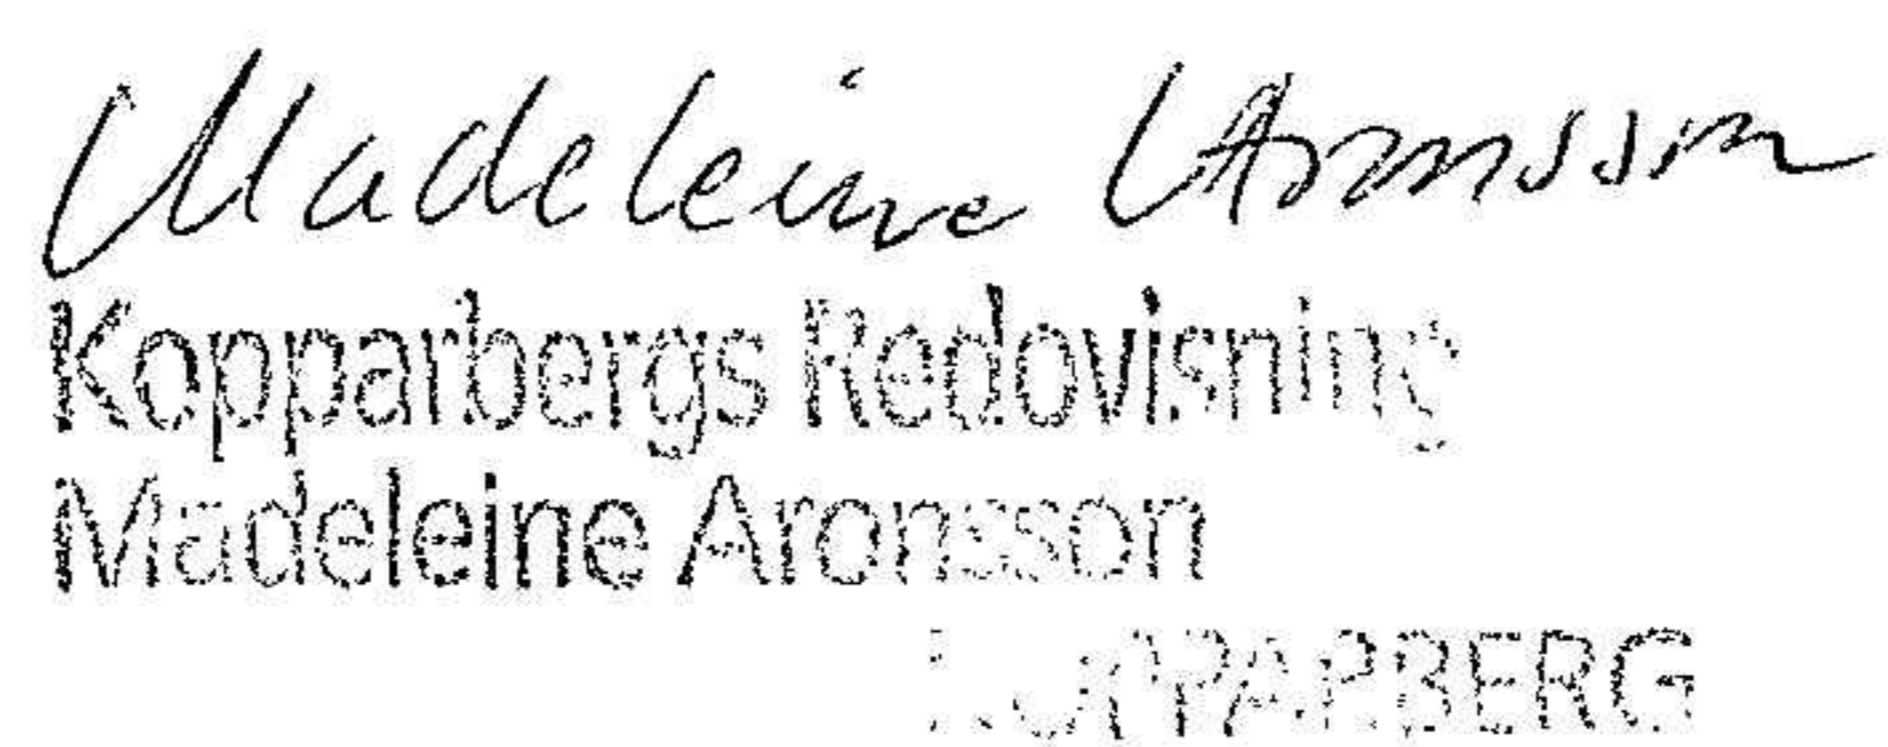 Madeleine Aronsson
Kopparbergs Redovisning
Madeleine Aronsson
KOPPARBERG